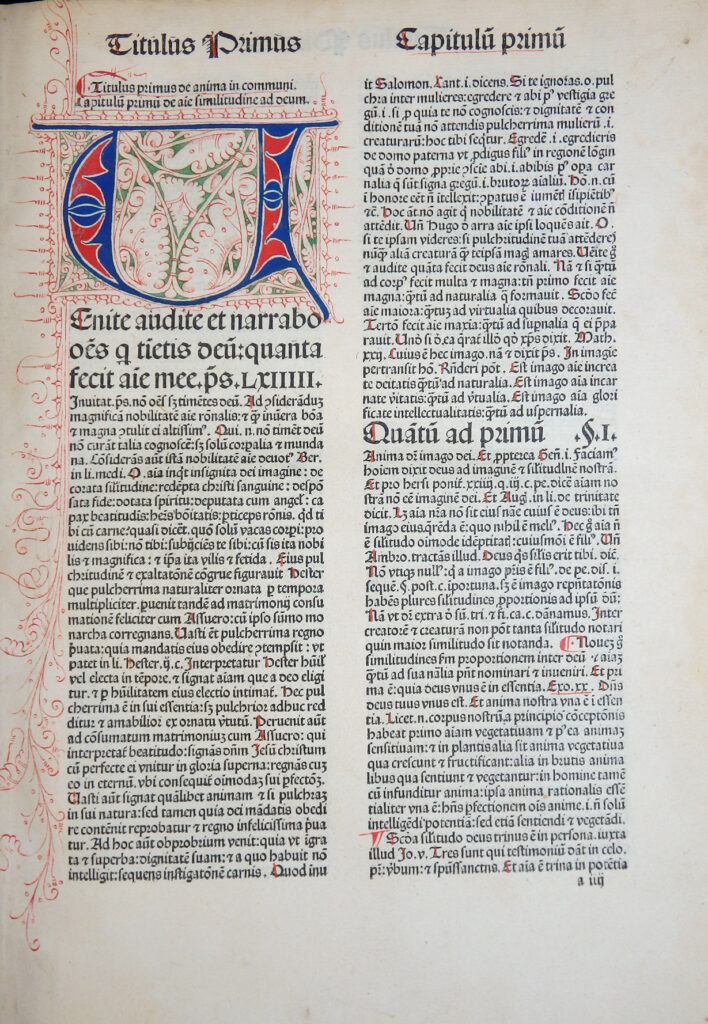 Titulus Primus
Capitulū primū
Titulus primus de anima in communi.
Capitulū primū de aie similitudine ad deum.
Uenite audite et narrabo
oēs q̄ timetis deū: quanta
fecit aie mee. ps. LXIIIII.
Inuitat. ps. nō oēs sꝫ timētes deū. Ad ↄsiderādū
magnificā nobilitatē aie rōnalis: ⁊ q̄ inuēra bōa
⁊ magna ↄtulit ei altissimꝰ. Qui. n. nō timēt deū
nō curāt talia cognoscē: sꝫ solū corpalia ⁊ munda
na. Cōsiderās aūt istā nobilitatē aie deuotꝰ Ber.
in li. medi. O. aia inq̄t insignita dei imagine: de
corata silitudine: redēpta christi sanguine: despō
sata fide: dotata spiritu: deputata cum angelꝭ: ca
pax beatitudīs: hēꝭs bōitatis: pticeps rōnis. qd̄ ti
bi cū carne: quas dicēt. quō solū vacas corpi: pro
uidens sibi: nō tibi: subijciēs te sibi: cū sis ita nobi
lis ⁊ magnifica: ⁊ ipa ita vilis ⁊ fetida. Eius pul
chritudinē ⁊ exaltatōnē cōgrue figurauit Hester
que pulcherrima naturaliter ornata p tempora
multipliciter. puenit tandē ad matrimonij consu
mationē feliciter cum Assuero: cū ipso sūmo mo
narcha corregnans. Uasti ēt pulcherrima regno
puata: quia mandatis eius obedire ↄtempsit: vt
patet in li. Hester. ij. c. Interpretatur Hester hūil
vel electa in tēpore. ⁊ signat aiam que a deo eligi
tur. ⁊ p hūilitatem eius electio intimat. Hec pul
cherrima ē in sui essentia: sꝫ pulchrior adhuc red
ditur ⁊ amabilior ex ornatu v̄tutū. Peruenit aūt
ad cōsumatum matrimoniuꝫ cum Assuero: qui
interpretat beatitudo: signās dn̄m Jesū christum
cū perfecte ei vnitur in gloria superna: regnās cuꝫ
eo in eternū. vbi consequit oīmodaꝫ sui pfectōꝫ.
Uasti aūt signat quālibet animam ⁊ si pulchraꝫ
in sui natura: sed tamen quia dei mādatis obedi
re contēnit reprobatur ⁊ regno infelicissima pua
tur. Ad hoc aūt obprobrium venit: quia vt īgra
ta ⁊ superba: dignitatē suam: ⁊ a quo habuit nō
intelligit: sequens instigatōnē carnis. Quod inu
it Salomon. Cant. i. dicens. Si te ignoras. o. pul
chra inter mulieres: egredere ⁊ abi p vestigia gre
gū. i. si p quia te nō cognoscis: ⁊ dignitatē ⁊ con
ditionē tuā nō attendis pulcherrima mulierū. i.
creaturarū: hoc tibi seq̄tur. Egredē. i. egredieris
de domo paterna vt pdigus filꝰ in regionē lōgin
quā ō domo pprie ↄscie abi. i. abibis p opa car
nalia q̄ sūt signa gregū. i. brutoꝝ aialiū. Hō. n. cū
i honore eēt n̄ itellexit: ↄpatus ē iumētꝭ isipiētibꝰ
⁊c. Hoc āt nō agit q̄ nobilitatē ⁊ aie cōditionē n̄
attēdit. Un̄ Hugo ō arra aie ipsi loquēs ait. O.
si te ipsam videres: si pulchritudinē tuā attēderes
nūq̄ aliā creaturā q̄ teipsaꝫ magꝭ amares. Uēite g̊
⁊ audite quāta fecit deus aie rōnali. Nā ⁊ si q̄tū
ad corpꝰ fecit multa ⁊ magna: tn̄ primo fecit aie
magna: q̄tū ad naturalia q̄ formauit. Scōo fec
aie maiora: q̄tuꝫ ad virtualia quibus decorauit.
Tertō fecit aie maxīa: q̄tū ad supnalia q̄ ei ppa
rauit. Unō si ō. ea q̄raf illō qō xp̄s dixit. Math.
xxij. Cuius ē hec imago. nā ⁊ dixit ps. In imagie
pertransit hō. Rn̄deri pōt. Est imago aie increa
te deitatis q̄tū ad naturalia. Est imago aia incar
nate v̄itatis: q̄tū ad v̄tualia. Est imago aia glori
ficate intellectualitatis: q̄tū ad uspernalia.
Quātū ad primū .§. I.
Anima dꝫ imago dei. Et ppterea Gen̄. i. Faciamꝰ
hoīem dixit deus ad imaginē ⁊ silitudinē nostrā.
Et pro hersi ponit. xxiij. q. iij. c. pe. dicē aiam no
strā nō eē imaginē dei. Et Aug. in li. de trinitate
dicit. Lꝫ aia nr̄a nō sit eius nāe cuius ē deus: ibi tn̄
imago eius q̄rēda ē: quo nihil ē meliꝰ. Hec g̊ aia n̄
ē silitudo oīmode idētitatꝭ: cuiusmōi ē filꝰ. Un̄
Ambro. tractās illud. Deus q̄s silis erit tibi. dic.
Nō vtiqꝫ nullꝰ: q̄ a imago p̄ris ē filꝰ. de pe. dis. i.
sequē. §. post. c. iportuna. sꝫ ē imago rep̄ntatōnis
habēs plures silitudines. pportionis ad ipsū dm̄:
Nā vt dꝫ extra ō sū. tri. ⁊ fi. ca. c. dānamus. Inter
creatorē ⁊ creaturā non pōt tanta silitudo notari
quin maior silitudo sit notanda. Nouēꝫ g̊
similitudines fm proportionem inter deū ⁊ aiaꝫ
q̄tū ad sua nālia pn̄t nominari ⁊ inueniri. Et pri
ma ē: quia deus vnus ē in essentia. Exo. xx. Dn̄s
deus tuus vnus est. Et anima nostra vna ē i essen
tia. Licet. n. corpus nostrū, a principio cōceptōnis
habeat primo aiam vegetatiuam ⁊ pꝰ ea animaꝫ
sensitiuam: ⁊ in plantis alia sit anima vegetatiua
qua crescunt ⁊ fructificant: alia in brutis anima
libus qua sentiunt ⁊ vegetantur: in homine tamē
cū infunditur anima: ipsa anima rationalis essen
tialiter vna ē: hn̄s pfectionem oīs anime. i. n̄ solū
intelligēdi potentiā: sed etiā sentiendi ⁊ vegetādi.
Scōa silitudo deus trinus ē in persona. iuxta
illud Jo. v. Tres sunt qui testimoniū dāt in celo.
p̄r: v̄bum: ⁊ spūssanctus. Et aīa ē trina in potētia
a iiij